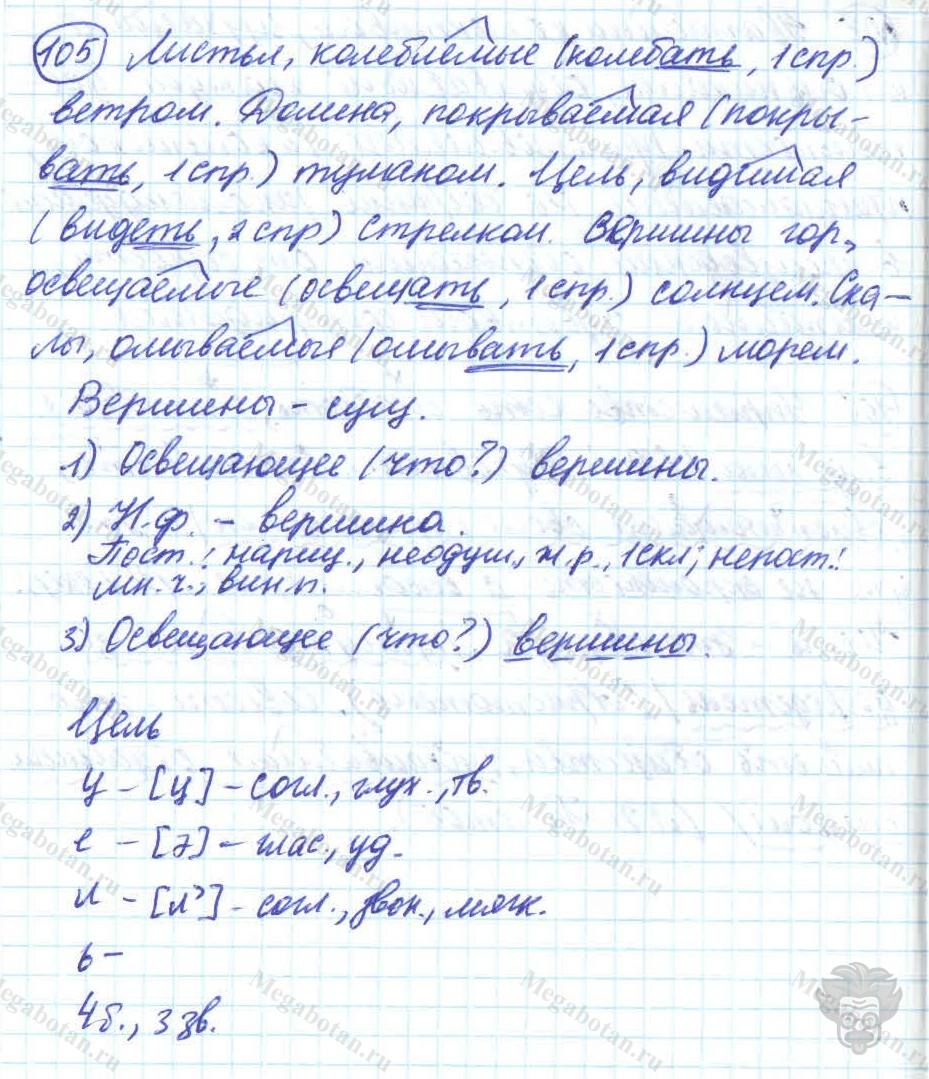 105 Листья, колеблемые (колебать, 1 спр.)
ветром. Долина, покрываемая (покры-
вать, 1 спр.) туманом. Цель, видимая
(видеть, 2 спр) стрелком. Вершины гор,
освещаемые (освещать, 1 спр.) солнцем. Ска-
лы, омываемые (омывать, 1 спр.) морем.
Вершины - сущ.
1) Освещающее (что?) вершины.
2) Н.ф. - вершина.
Пост.: нариц., неодуш., ж.р., 1 скл; непост.:
мн.ч., вин.п.
3) Освещающее (что?) вершины.
Цель
ц - [ц] - согл., глух., тв.
е - [э] - глас., уд.
л - [л'] - согл., звон., мягк.
ь -
4 б., 3 зв.
Megabotan.ru